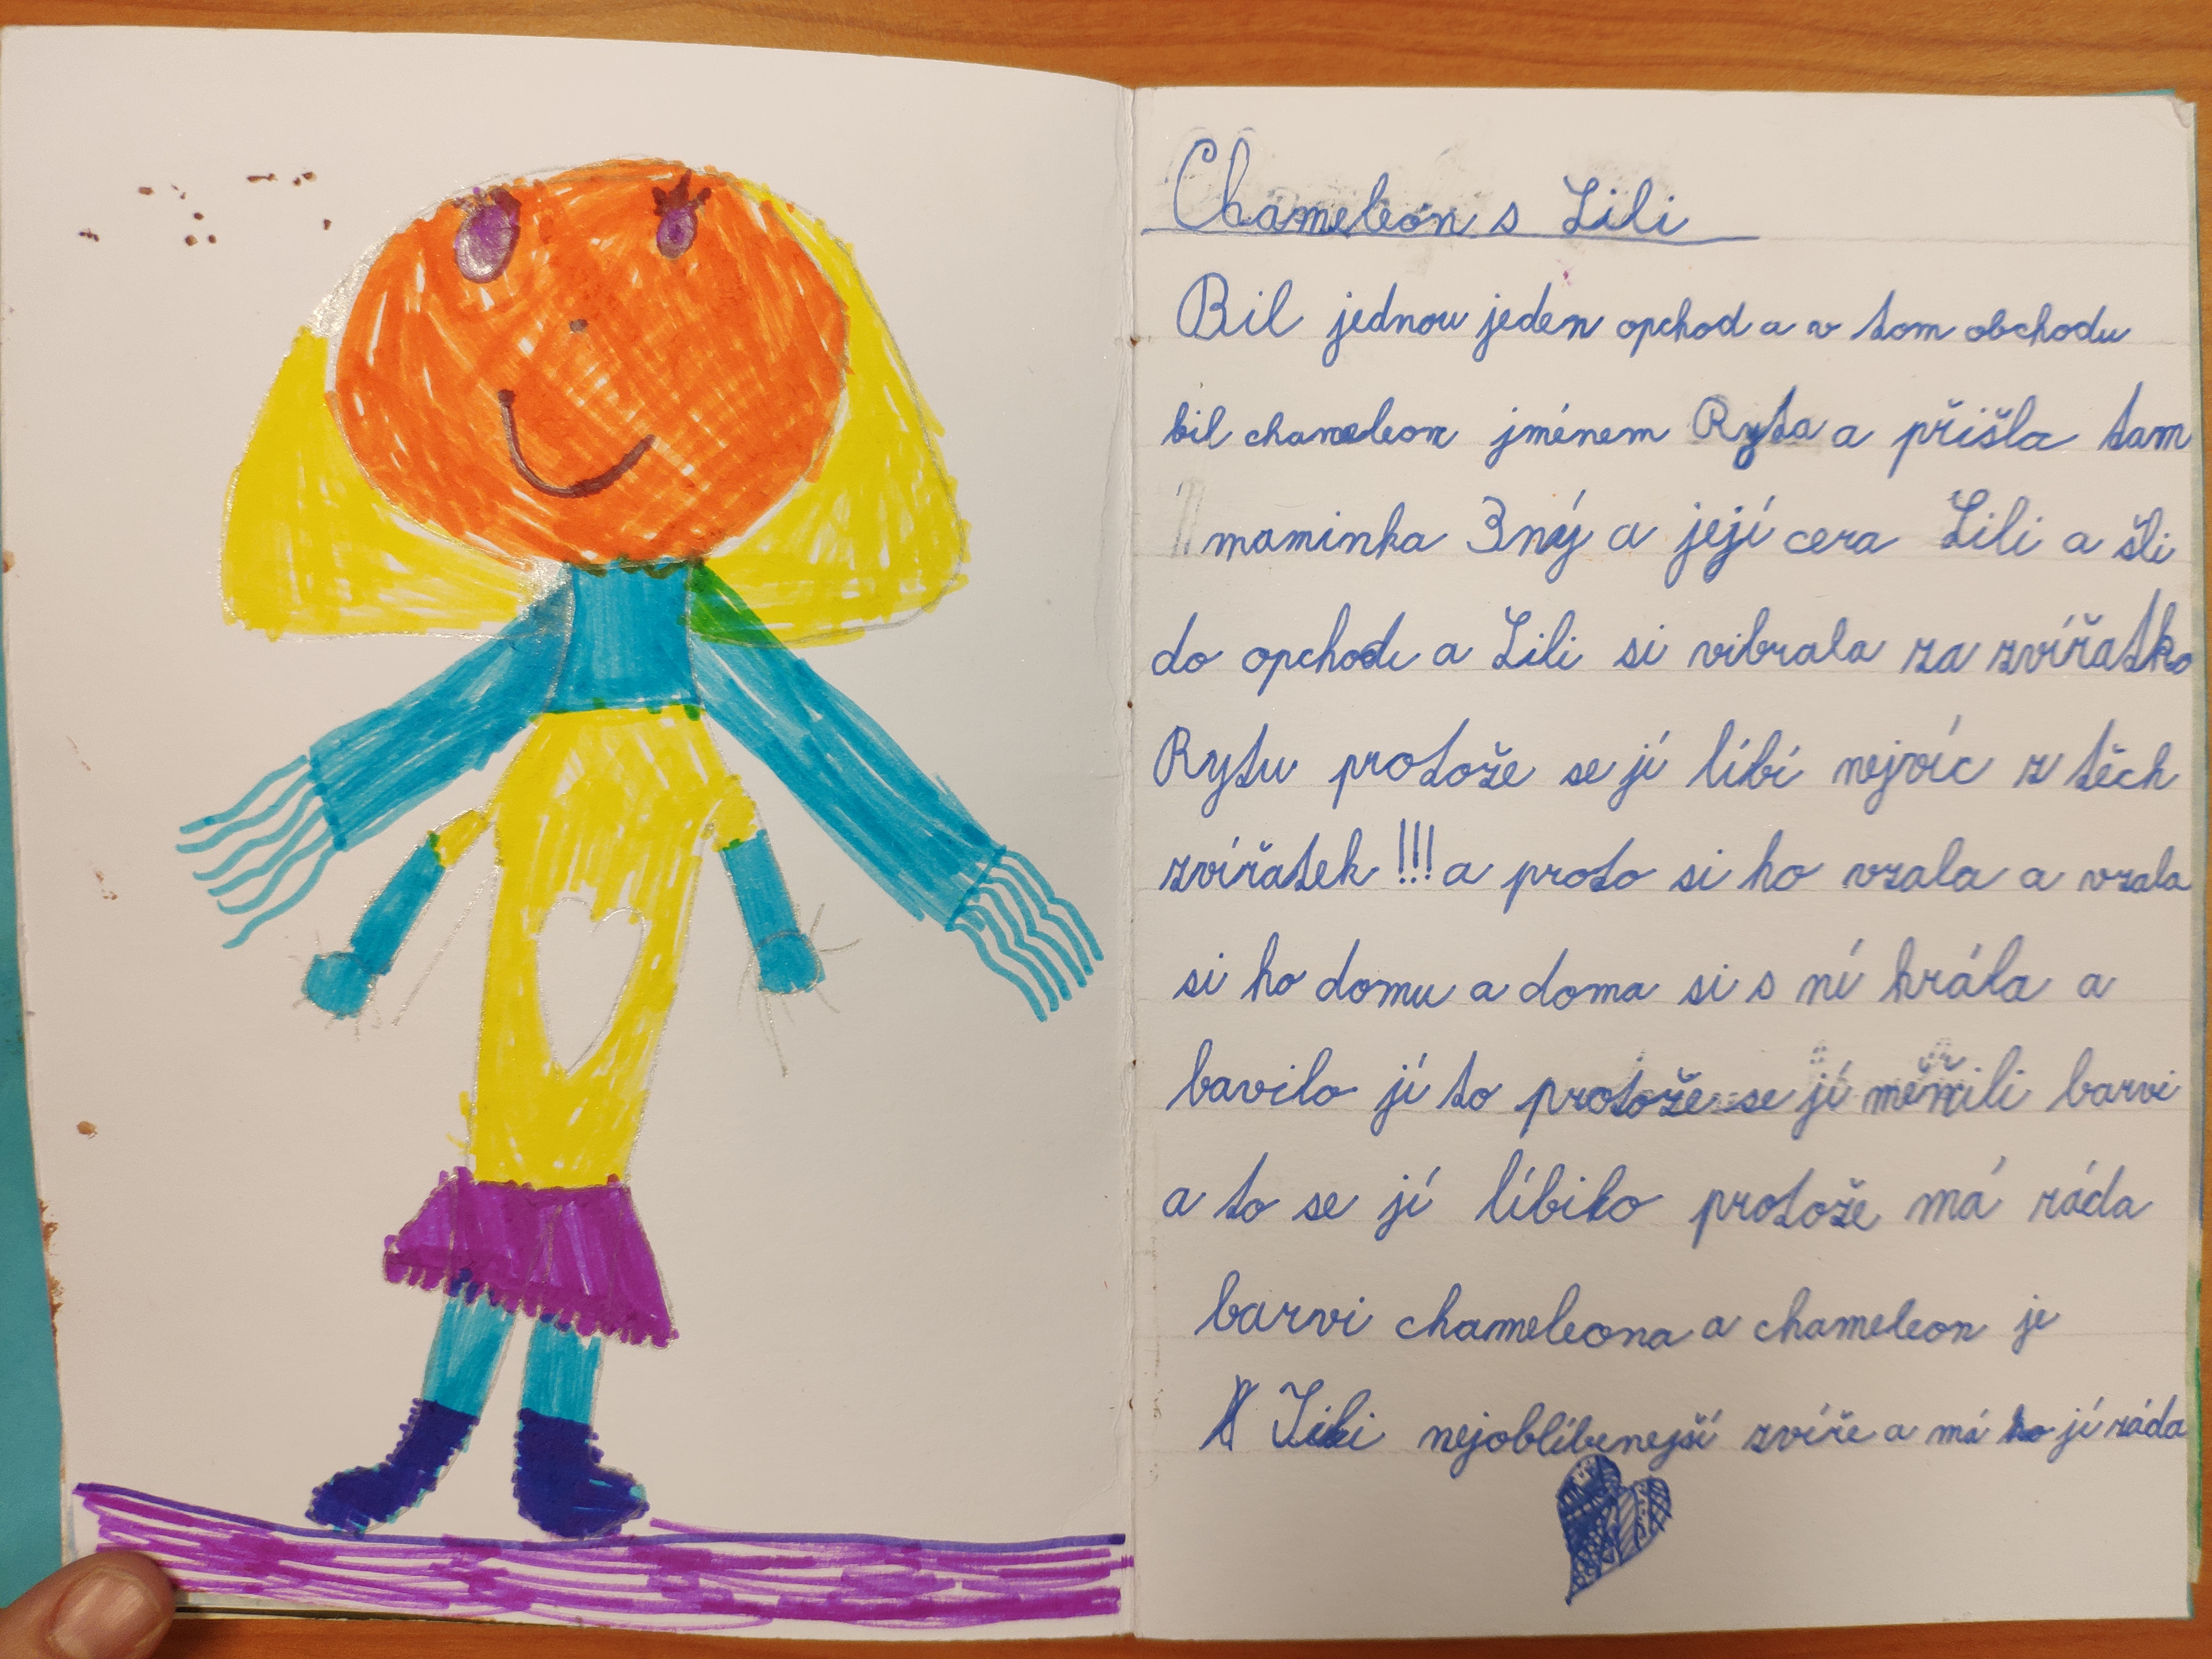 Chameleon s Lili
Bil jednou jeden opchod a v tom obchodu
bil chameleon jménem Ryta a přišla tam
maminka a její cera Lili a šli
do opchodu a Lili si vibrala za zvířatko
Rytu protože se jí líbí nejvíc z těch
zvířatek !!! a proto si ho vzala a vzala
si ho domu a doma si s ní hrála a
bavilo jí to protože se jí měnili barvi
a to se jí líbilo protože má ráda
barvi chameleona a chameleon je
Lili nejoblíbenejší zvíře a má jí ráda